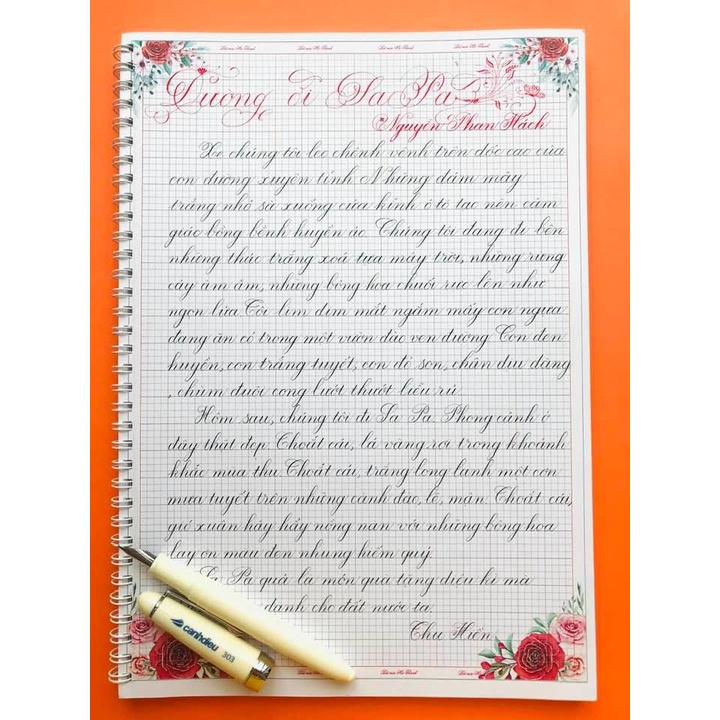 Đường đi Sa Pa
Nguyễn Phan Hách
Xe chúng tôi leo chênh vênh trên dốc cao của
con đường xuyên tỉnh. Những đám mây
trắng nhỏ sà xuống cửa kính ô tô tạo nên cảm
giác bồng bềnh huyền ảo. Chúng tôi đang đi bên
những thác trắng xoá tựa mây trời, những rừng
cây âm âm, những bông hoa chuối rực lên như
ngọn lửa. Tôi lim dim mắt ngắm mấy con ngựa
đang ăn cỏ trong một vườn đào ven đường. Con đen
huyền, con trắng tuyết, con đỏ son, chân dịu dàng
, chùm đuôi cong lướt thướt liễu rủ.
Hôm sau, chúng tôi đi Sa Pa. Phong cảnh ở
đây thật đẹp. Thoắt cái, lá vàng rơi trong khoảnh
khắc mùa thu. Thoắt cái, trắng long lanh một cơn
mưa tuyết trên những cành đào, lê, mận. Thoắt cái,
gió xuân hây hẩy nồng nàn với những bông hoa
lay ơn màu đen nhung hiếm quý.
Sa Pa quả là món quà tặng diệu kì mà
dành cho đất nước ta.
Thu Hiền
canhdieu 303